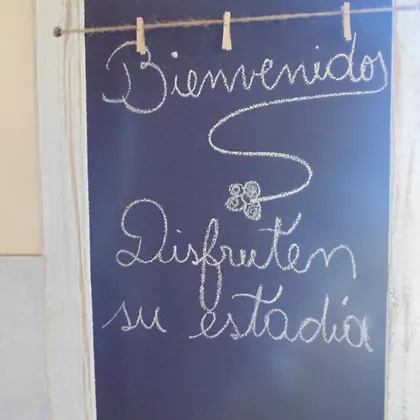 Bienvenidos
Disfruten
su estadia